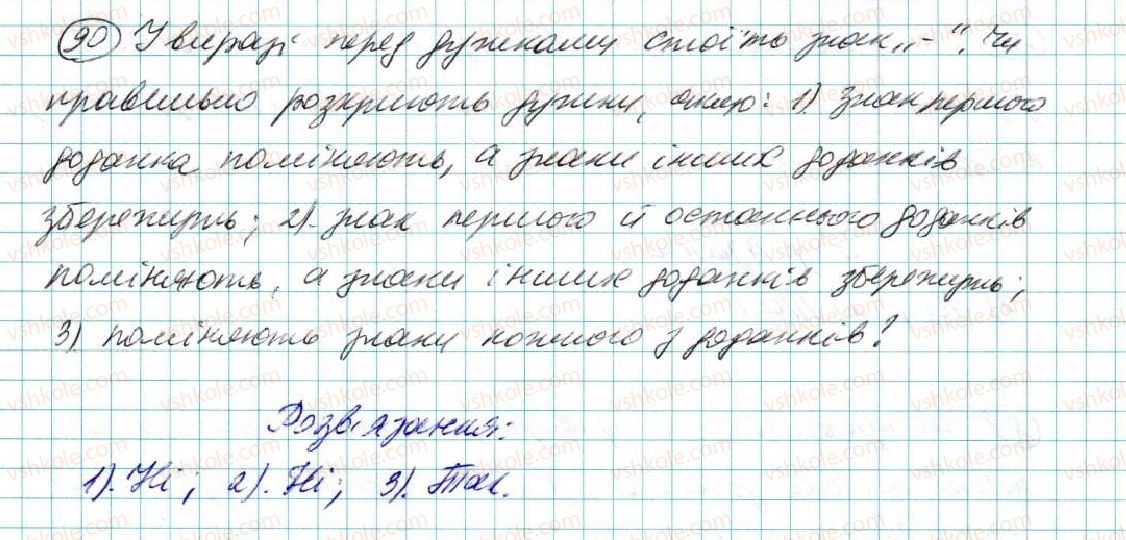 90 У виразі перед дужками стоїть знак „-“. Чи
правильно розкриють дужки, якщо: 1). знак першого
доданка поміняють, а знаки інших доданків
збережуть; 2). знак першого й останнього доданків
поміняють, а знаки інших доданків збережуть;
3). поміняють знаки кожного з доданків?
Розв'язання:
1). Ні; 2). Ні; 3). Так.